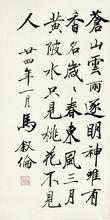 蒼山雲雨逐明神唯有
香名歲歲春東風三月
黄陂水只見桃花不見
人 廿四年一月馬敘倫